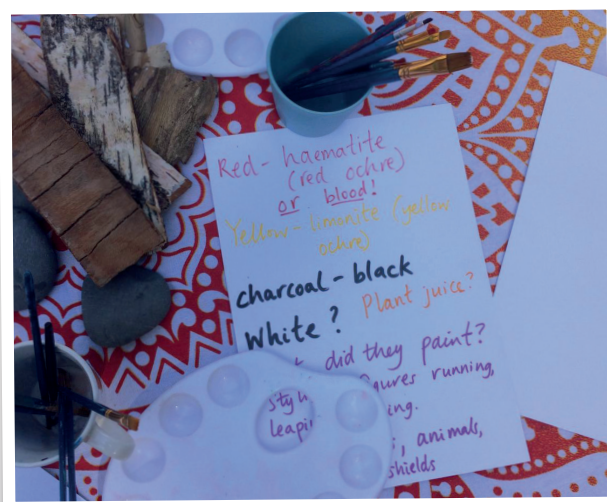 Red - haematite
(red ochre)
or blood!
Yellow - limonite (yellow
ochre)
charcoal - black
Plant juice?
White?
did they paint?
figures running,
leapi
animals,
shields